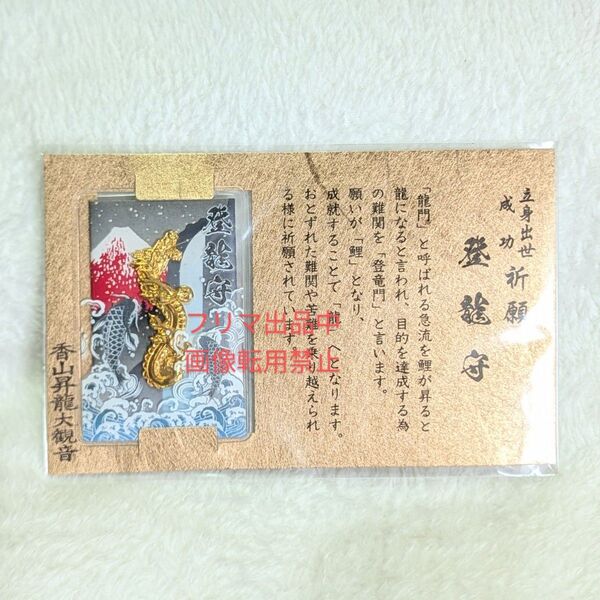 立身出世
成功
祈願
登龍守
「龍門」と呼ばれる急流を鯉が昇ると
龍になると言われ、目的を達成する為
の難関を「登竜門」と言います。
願いが「鯉」となり、
成就することで「龍」へとなります。
おとずれた難関や苦難を乗り越えられ
る様に祈願されています。
登龍守
香山昇龍大観音
フリマ出品中
画像転用禁止